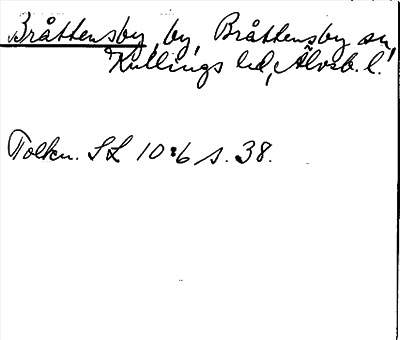 Bråttensby, by, Bråttensby sn,
Kullings hd, Älvsb. l.
Tolkn. SL 10:6 s. 38.